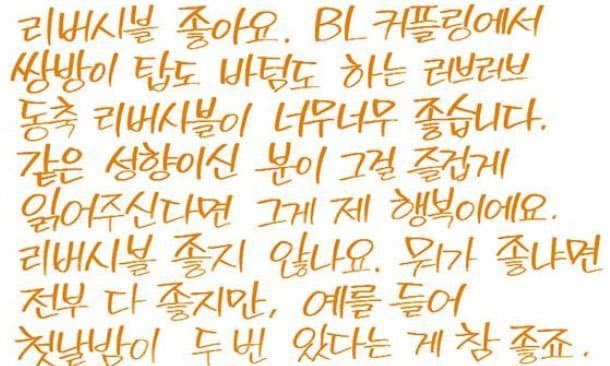 리버시블 좋아요. BL 커플링에서
쌍방이 탑도 바텀도 하는 러브러브
동축 리버시블이 너무너무 좋습니다.
같은 성향이신 분이 그걸 즐겁게
읽어주신다면 그게 제 행복이에요.
리버시블 좋지 않나요. 뭐가 좋냐면
전부 다 좋지만, 예를 들어
첫날밤이 두 번 있다는 게 참 좋죠.